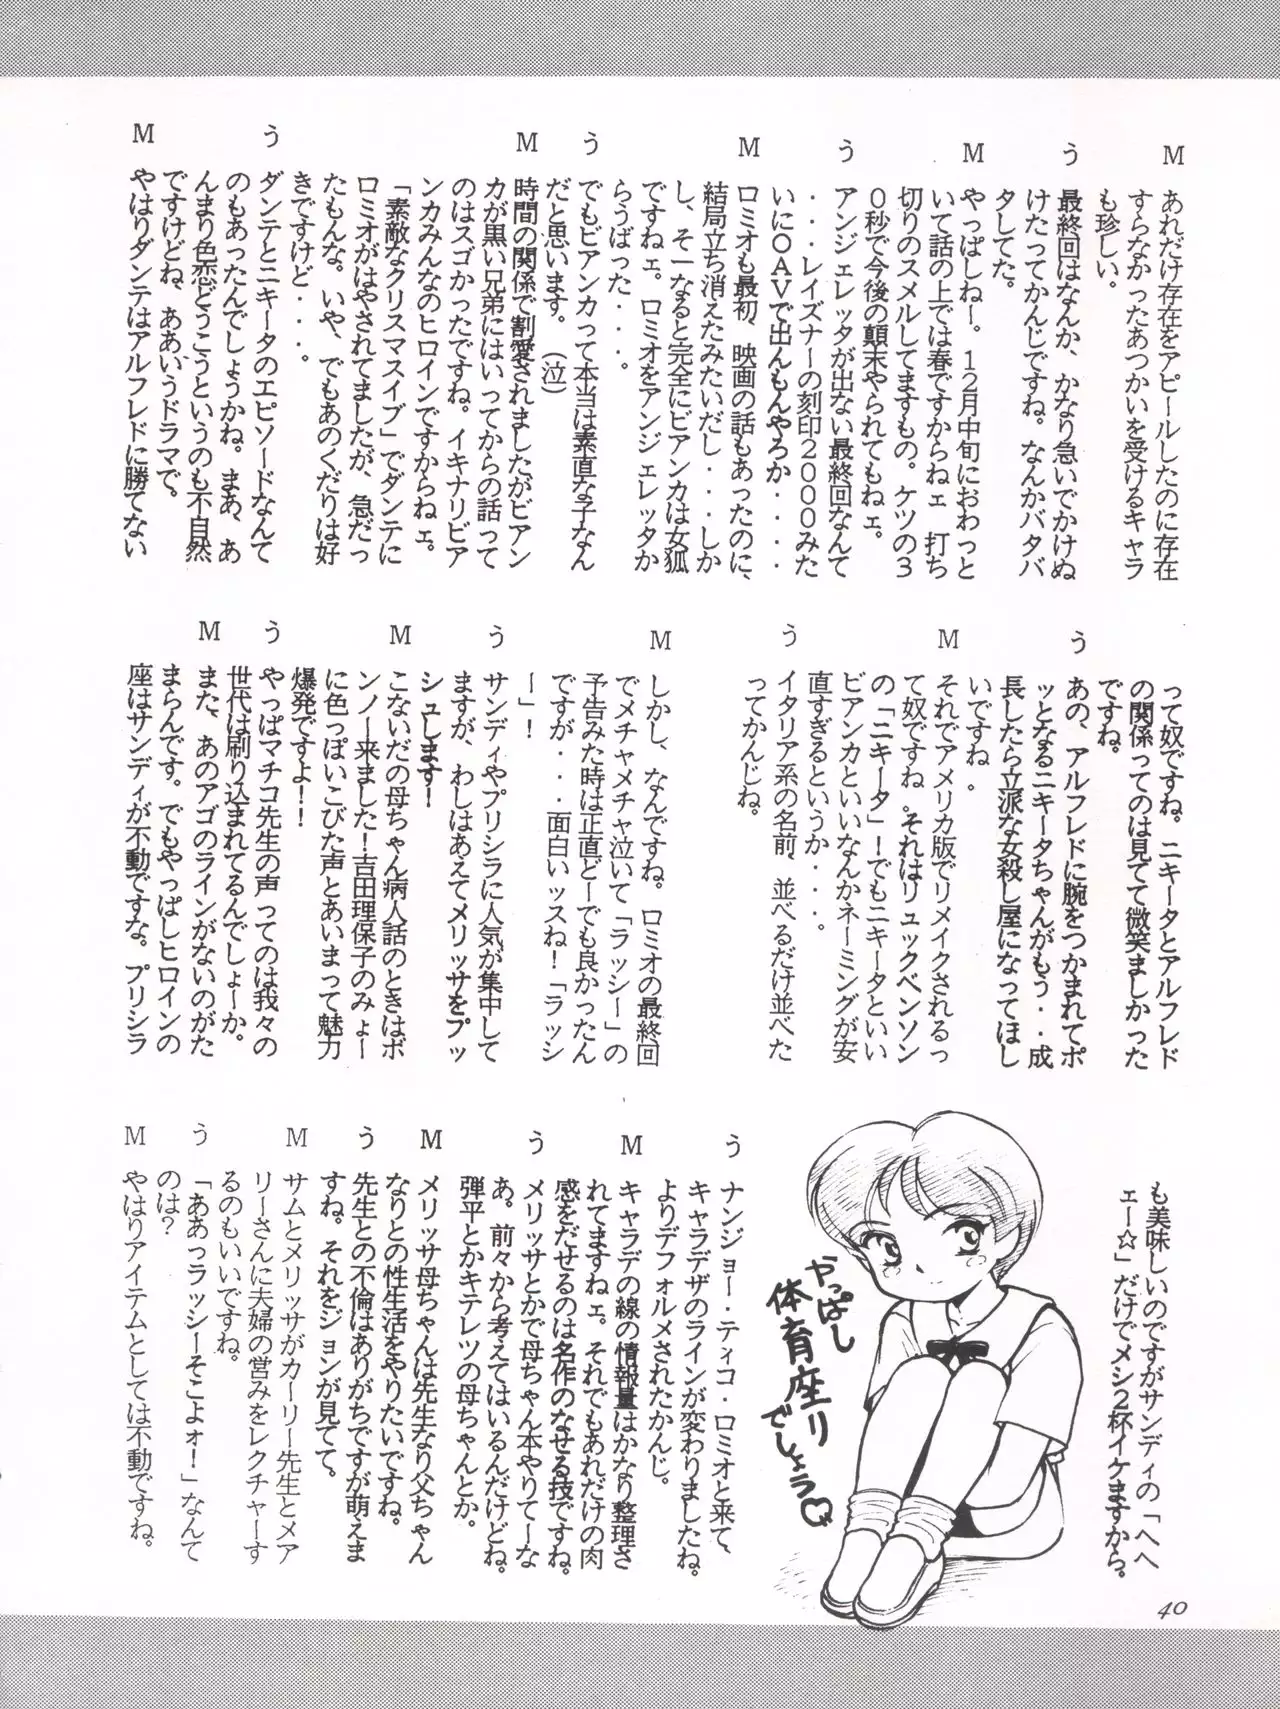 M
あれだけ存在をアピールしたのに存在
すらなかったあつかいを受けるキャラ
も珍しい。
う
最終回はなんか、かなり急いでかけぬ
けたってかんじですね。なんかバタバ
タしてた。
M
やっぱしねー。12月中旬におわっと
いて話の上では春ですからねェ 打ち
切りのスメルしてますもの。ケツの3
0秒で今後の顛末やられてもねェ。
う
アンジェレッタが出ない最終回なんて
・・・レイズナーの刻印2000みた
いにOAVで出んもんやろか・・・・・
M
ロミオも最初、映画の話もあったのに、
結局立ち消えたみたいだし・・・しか
し、そーなると完全にビアンカは女狐
ですねェ。ロミオをアンジェレッタか
らうばった・・・。
う
でもビアンカって本当は素直な子なん
だと思います。(泣)
M
時間の関係で割愛されましたがビアン
カが黒い兄弟にはいってからの話って
のはスゴかったですね。イキナリビア
ンカみんなのヒロインですからねェ。
「素敵なクリスマスイブ」でダンテに
ロミオがはやされてましたが、急だっ
たもんな。いや、でもあのくだりは好
きですけど・・・。
う
ダンテとニキータのエピソードなんて
のもあったんでしょうかね。まあ、あ
んまり色恋どうこうというのも不自然
ですけどね、ああいうドラマで。
M
やはりダンテはアルフレドに勝てない
って奴ですね。ニキータとアルフレド
の関係ってのは見てて微笑ましかった
ですね。
う
あの、アルフレドに腕をつかまれてポ
ッとなるニキータちゃんがもう・・成
長したら立派な女殺し屋になってほし
いですね。
M
それでアメリカ版でリメイクされるっ
て奴ですね。それはリュックベンソン
の「ニキータ」！でもニキータといい
ビアンカといいなんかネーミングが安
直すぎるというか・・・。
う
イタリア系の名前、並べるだけ並べた
ってかんじね。
M
しかし、なんですね。ロミオの最終回
でメチャメチャ泣いて「ラッシー」の
予告みた時は正直どーでも良かったん
ですが・・・面白いッスね！「ラッシ
ー」！
う
サンディやプリシラに人気が集中して
ますが、わしはあえてメリッサをプッ
シュします！
M
こないだの母ちゃん病人話のときはボ
ンノー来ました！吉田理保子のみょー
に色っぽいこびた声とあいまって魅力
爆発ですよ！！
う
やっぱマチコ先生の声ってのは我々の
世代は刷り込まれてるんでしょーか。
M
また、あのアゴのラインがないのがた
まらんです。でもやっぱしヒロインの
座はサンディが不動ですな。プリシラ
も美味しいのですがサンディの「へへ
ェー☆」だけでメシ2杯イケますから。
う
ナンジョー・ティコ・ロミオと来て、
キャラデザのラインが変わりましたね。
よりデフォルメされたかんじ。
M
キャラデの線の情報量はかなり整理さ
れてますねェ。それでもあれだけの肉
感をだせるのは名作のなせる技ですね。
う
メリッサとかで母ちゃん本やりてーな
あ。前々から考えてはいるんだけどね。
弾平とかキテレツの母ちゃんとか。
M
メリッサ母ちゃんは先生なり父ちゃん
なりとの性生活をやりたいですね。
う
先生との不倫はありがちですが萌えま
すね。それをジョンが見てて。
M
サムとメリッサがカーリー先生とメア
リーさんに夫婦の営みをレクチャーす
るのもいいですね。
う
「ああっラッシーそこよォ！」なんて
のは？
M
やはりアイテムとしては不動ですね。
やっぱし
体育座リ
でしょう♡
40